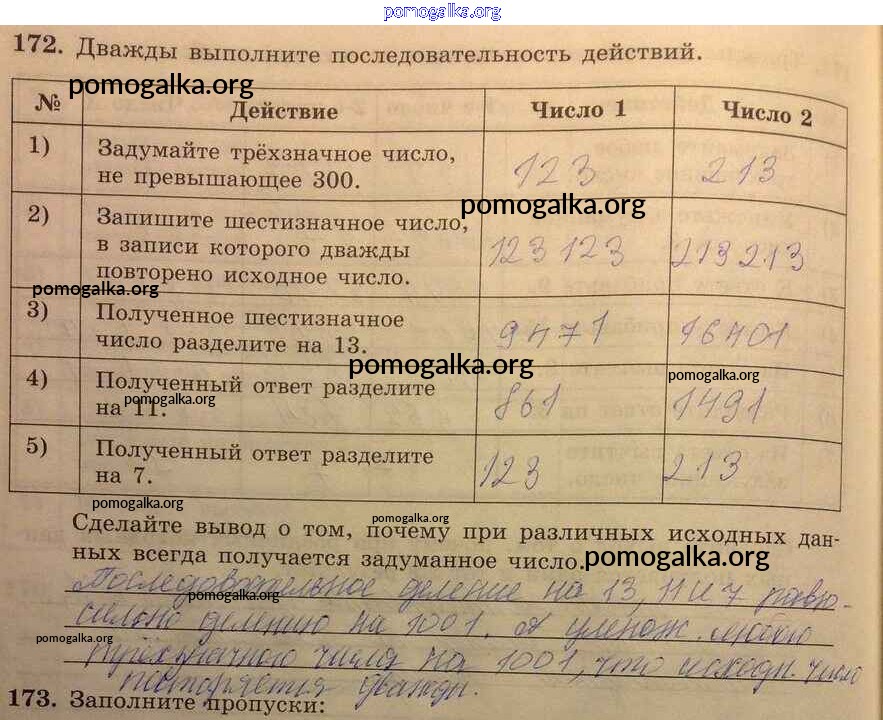 pomogalka.org
172. Дважды выполните последовательность действий.
pomogalka.org
№ Действие Число 1 Число 2
1) Задумайте трёхзначное число, 123 213
не превышающее 300.
pomogalka.org
2) Запишите шестизначное число,
в записи которого дважды 123 123 213 213
повторено исходное число.
pomogalka.org
3) Полученное шестизначное 9471 16401
число разделите на 13.
pomogalka.org
pomogalka.org
4) Полученный ответ разделите 861 1491
на 11.
pomogalka.org
5) Полученный ответ разделите 123 213
на 7.
pomogalka.org
pomogalka.org
Сделайте вывод о том, почему при различных исходных дан-
ных всегда получается задуманное число.
pomogalka.org
Последовательное деление на 13, 11 и 7 равно-
pomogalka.org
сильно делению на 1001. А умнож. любого
pomogalka.org
трёхзначного числа на 1001, что исходн. число
повторяется дважды.
173. Заполните пропуски: